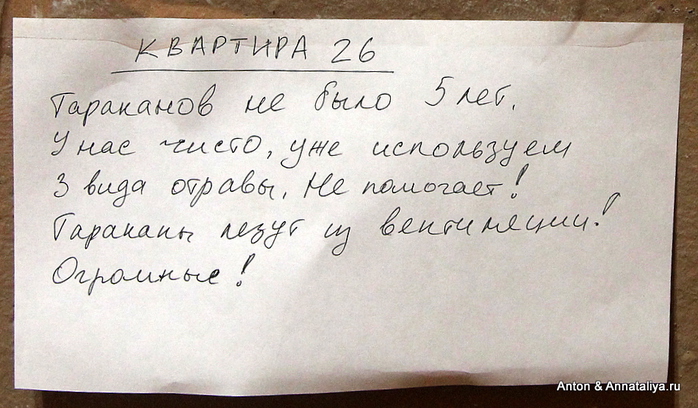 КВАРТИРА 26
Тараканов не было 5 лет.
У нас чисто, уже используем
3 вида отравы. Не помогает!
Тараканы лезут из вентиляции!
Огромные!
Anton & Annataliya.ru